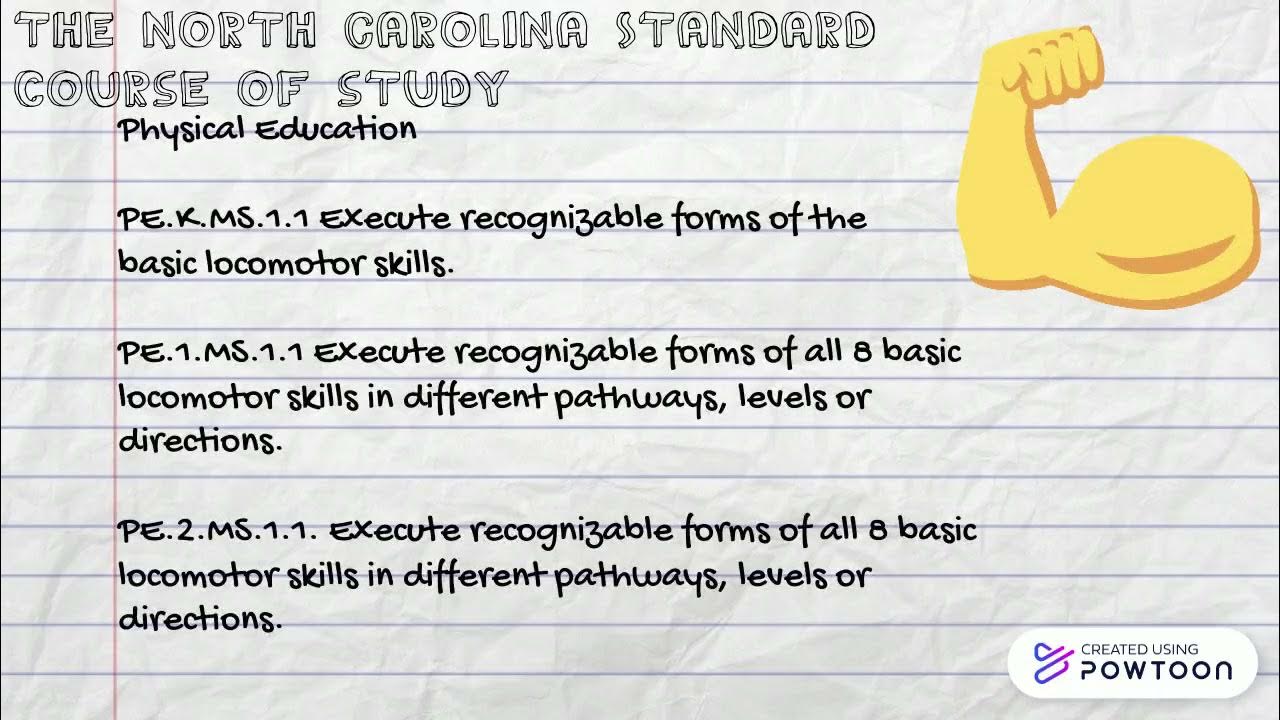 THE NORTH CAROLINA STANDARD
COURSE OF STUDY
Physical Education
PE.K.MS.1.1 Execute recognizable forms of the
basic locomotor skills.
PE.1.MS.1.1 Execute recognizable forms of all 8 basic
locomotor skills in different pathways, levels or
directions.
PE.2.MS.1.1. Execute recognizable forms of all 8 basic
locomotor skills in different pathways, levels or
directions.
CREATED USING
POWTOON